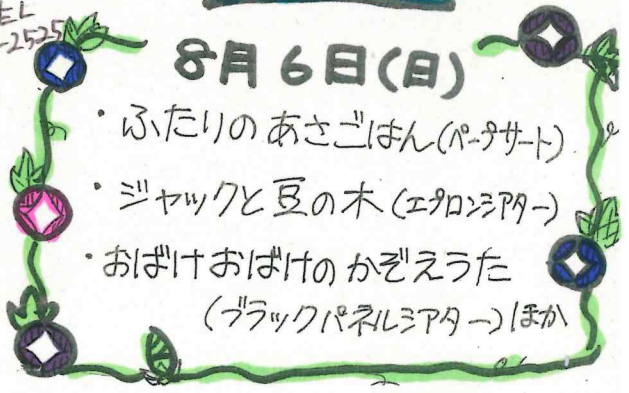 EL
-2525
8月6日(日)
・ふたりのあさごはん(ペープサート)
・ジャックと豆の木(エプロンシアター)
・おばけおばけのかぞえうた
(ブラックパネルシアター)ほか